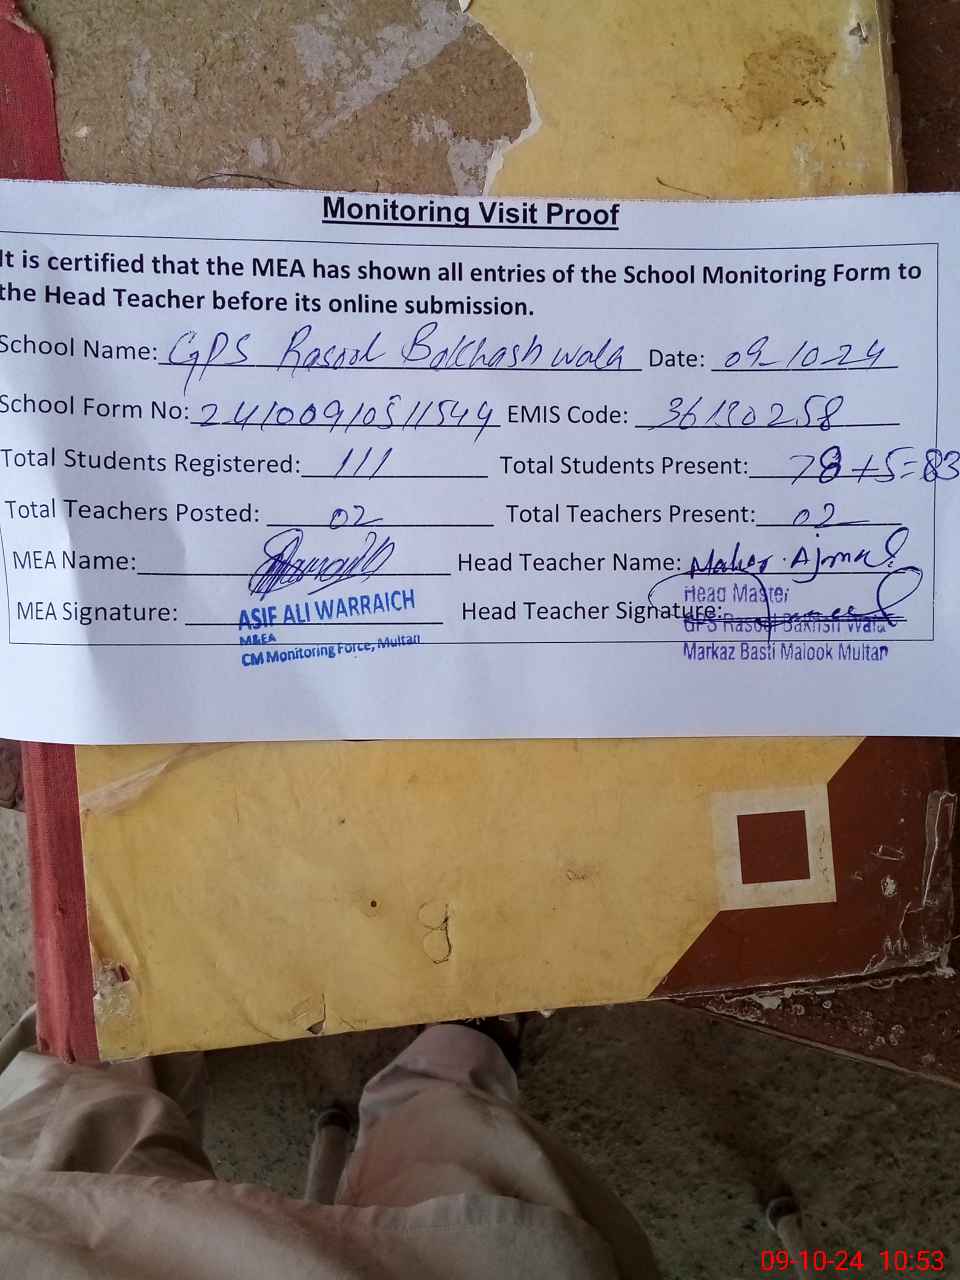 Monitoring Visit Proof
It is certified that the MEA has shown all entries of the School Monitoring Form to
the Head Teacher before its online submission.
School Name: GPS Rasool Bakhash wala Date: 09-10-24
School Form No: 2410091051154 EMIS Code: 36130258
Total Students Registered: 111 Total Students Present: 78+5=83
Total Teachers Posted: 02 Total Teachers Present: 02
MEA Name: Head Teacher Name: Maher Ajmal
MEA Signature: Head Teacher Signature:
ASIF ALI WARRAICH
M&EA
CM Monitoring Force, Multan
Head Master
GPS Rasool Bakhsh Wala
Markaz Basti Malook Multan
09-10-24 10:53